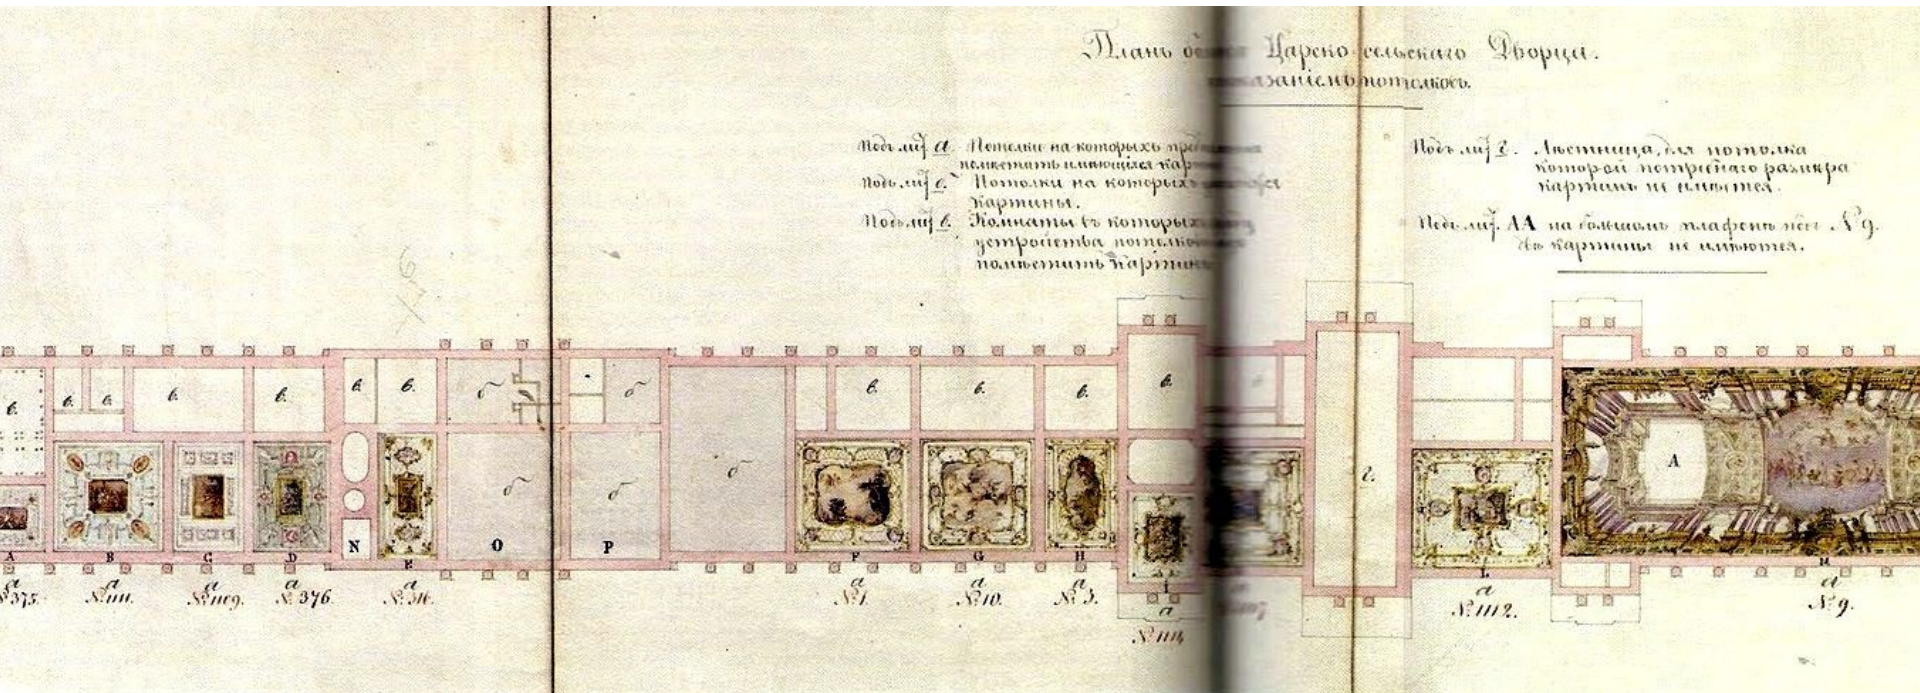 Планъ Царско-сельскаго Дворца.
потолковъ.
Подъ лит. а. Потолки на которыхъ
помѣстить имѣющіяся
Подъ лит. б. Потолки на которыхъ
картины.
Подъ лит. в. Комнаты въ которыхъ
устройства
помѣстить картинъ
Подъ лит. г. Лѣстница, для потолка
которой потребнаго размѣра
картинъ не имѣется.
Подъ лит. АА на большомъ плафонѣ подъ № 9.
картины не имѣются.
в. в. в. в. в. в. в. б б в. в. в. в.
б б б г. А
N O P
A B C D E F G H I L M
а а а а а а а а а а
№ 375. № 1111. № 1109. № 376. № 316. № 1. № 10. № 3. № 1112. № 9.
№ 1114